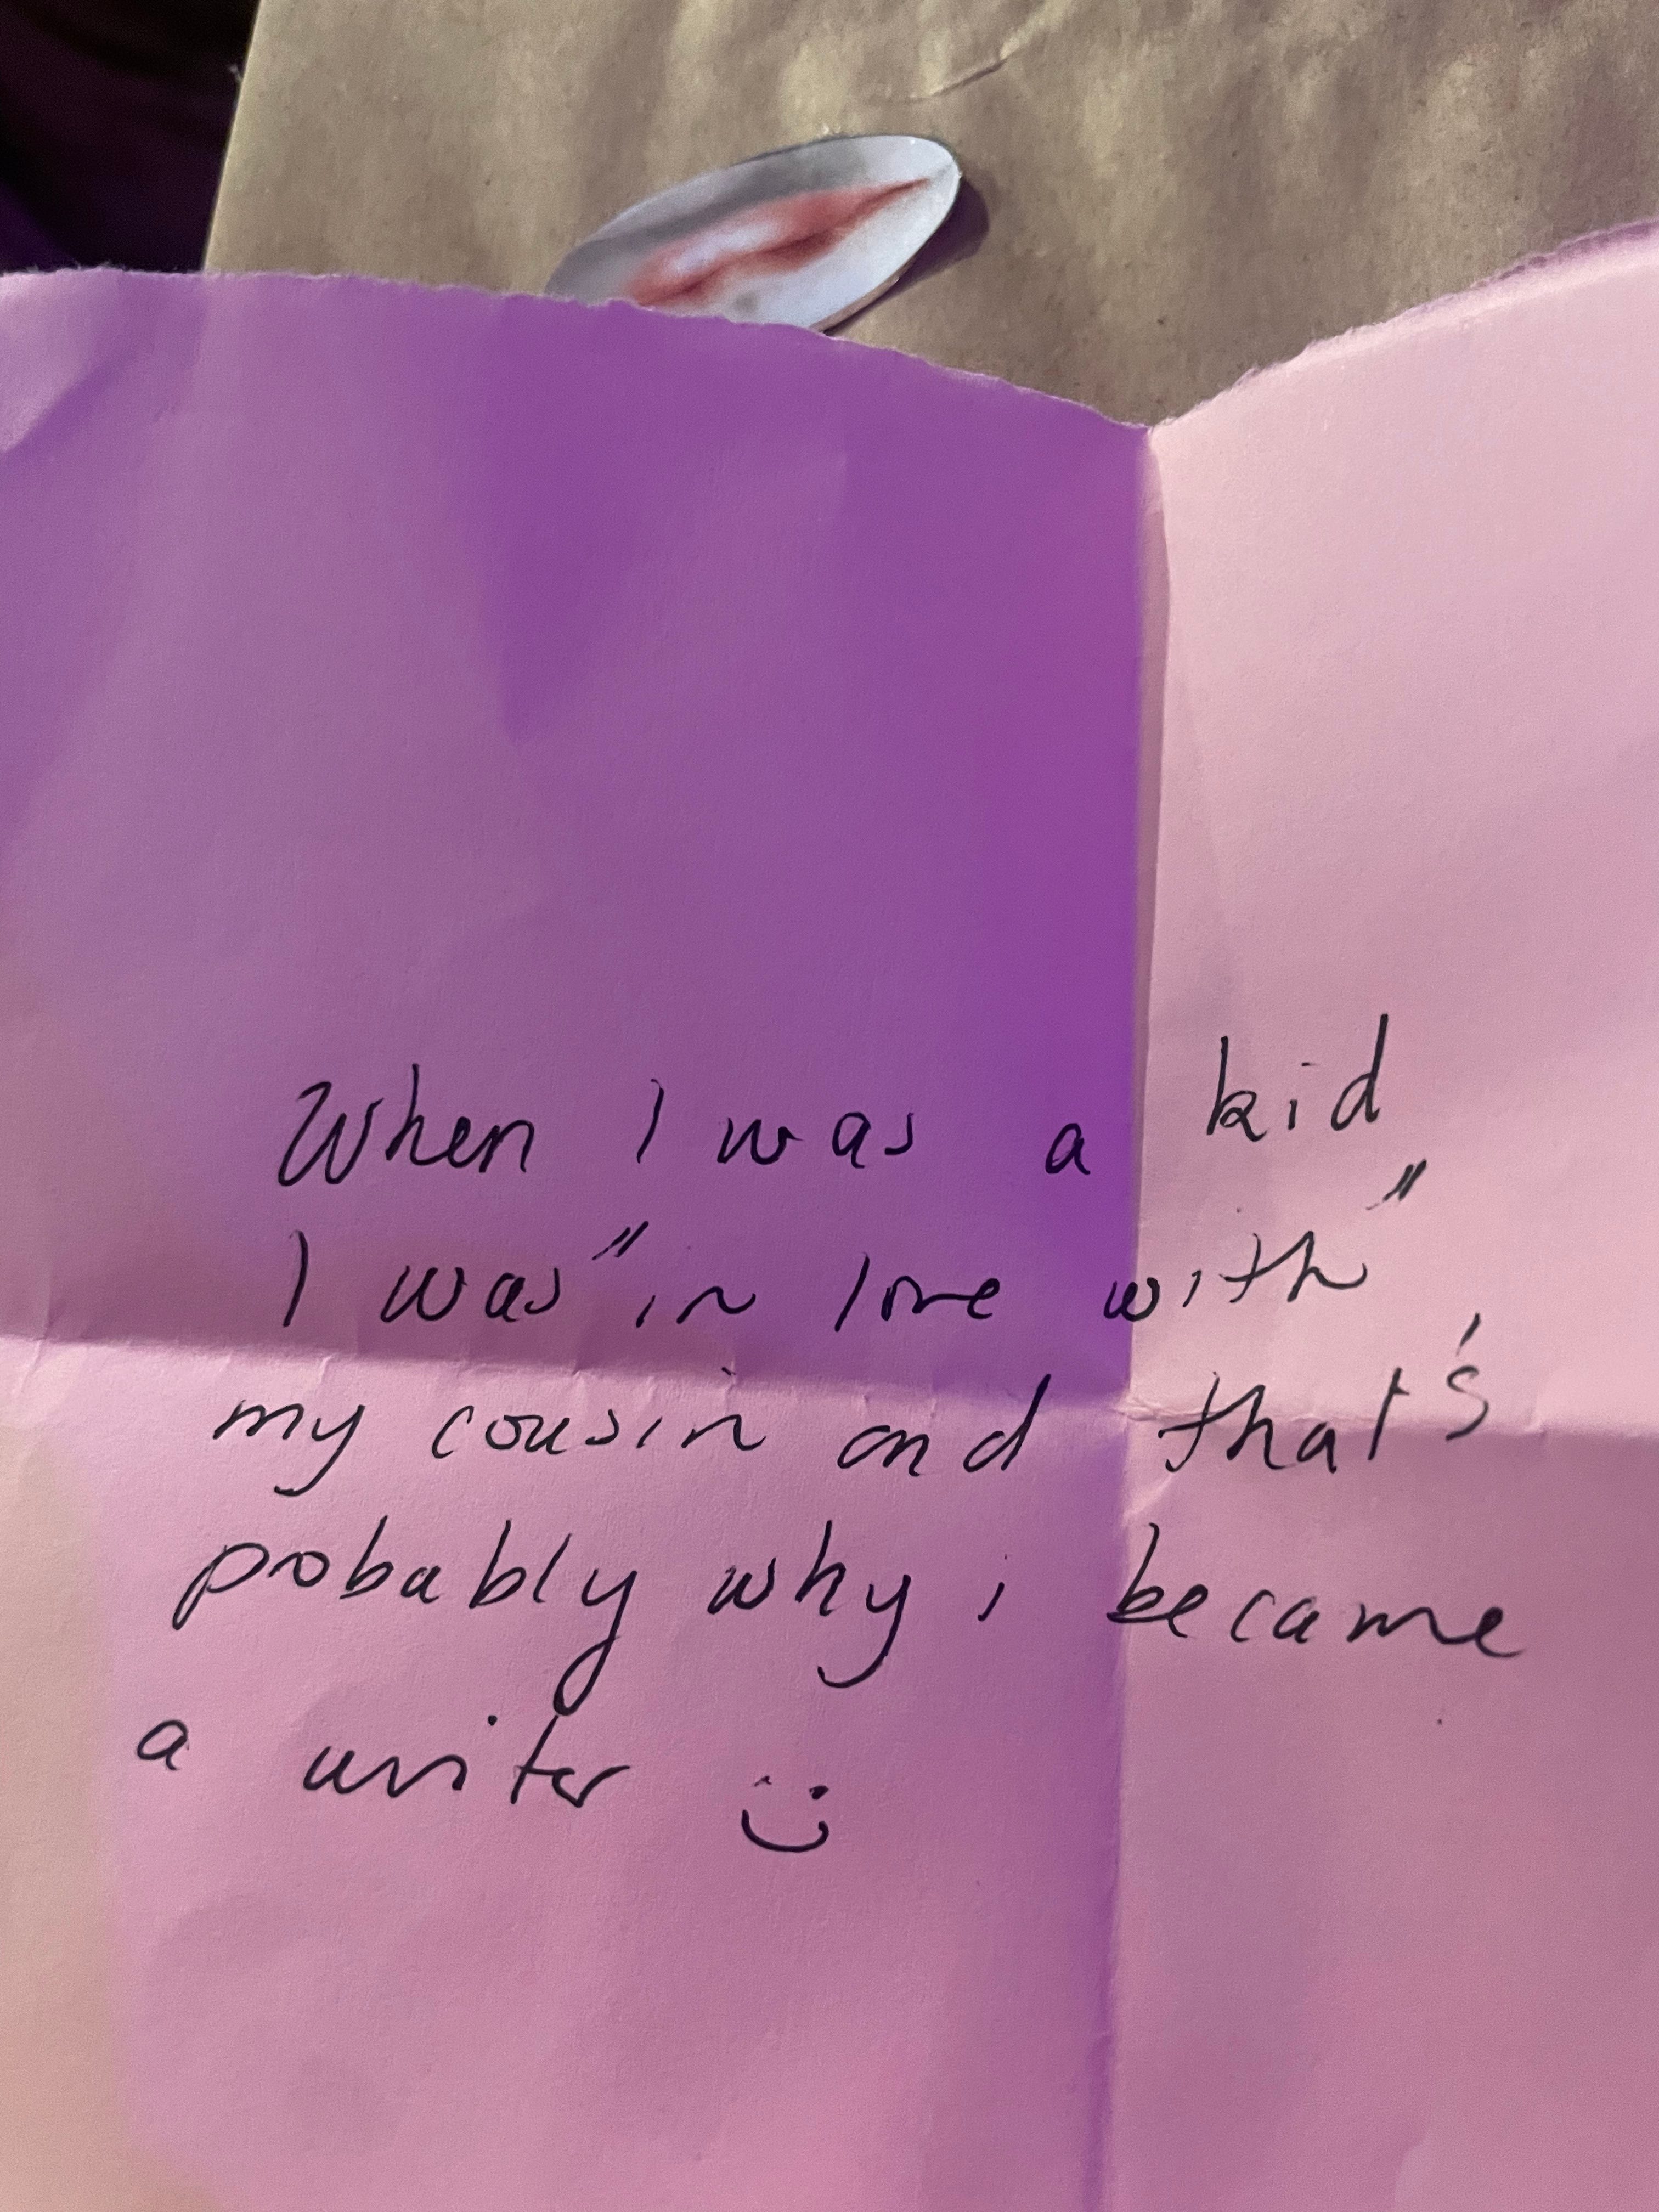 When I was a kid
I was "in love with"
my cousin and that's
probably why i became
a writer :)